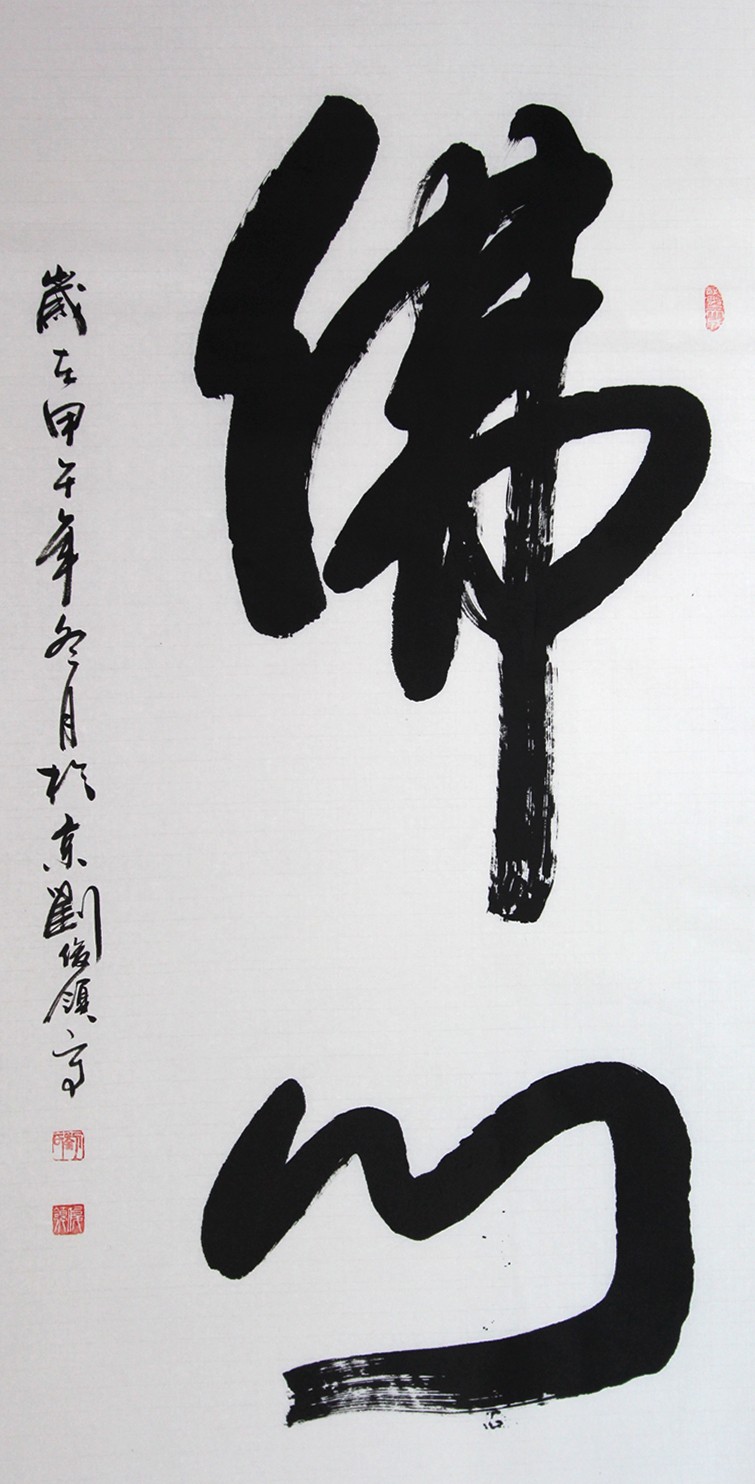 佛心
歲在甲午年冬月於京劉俊領寫